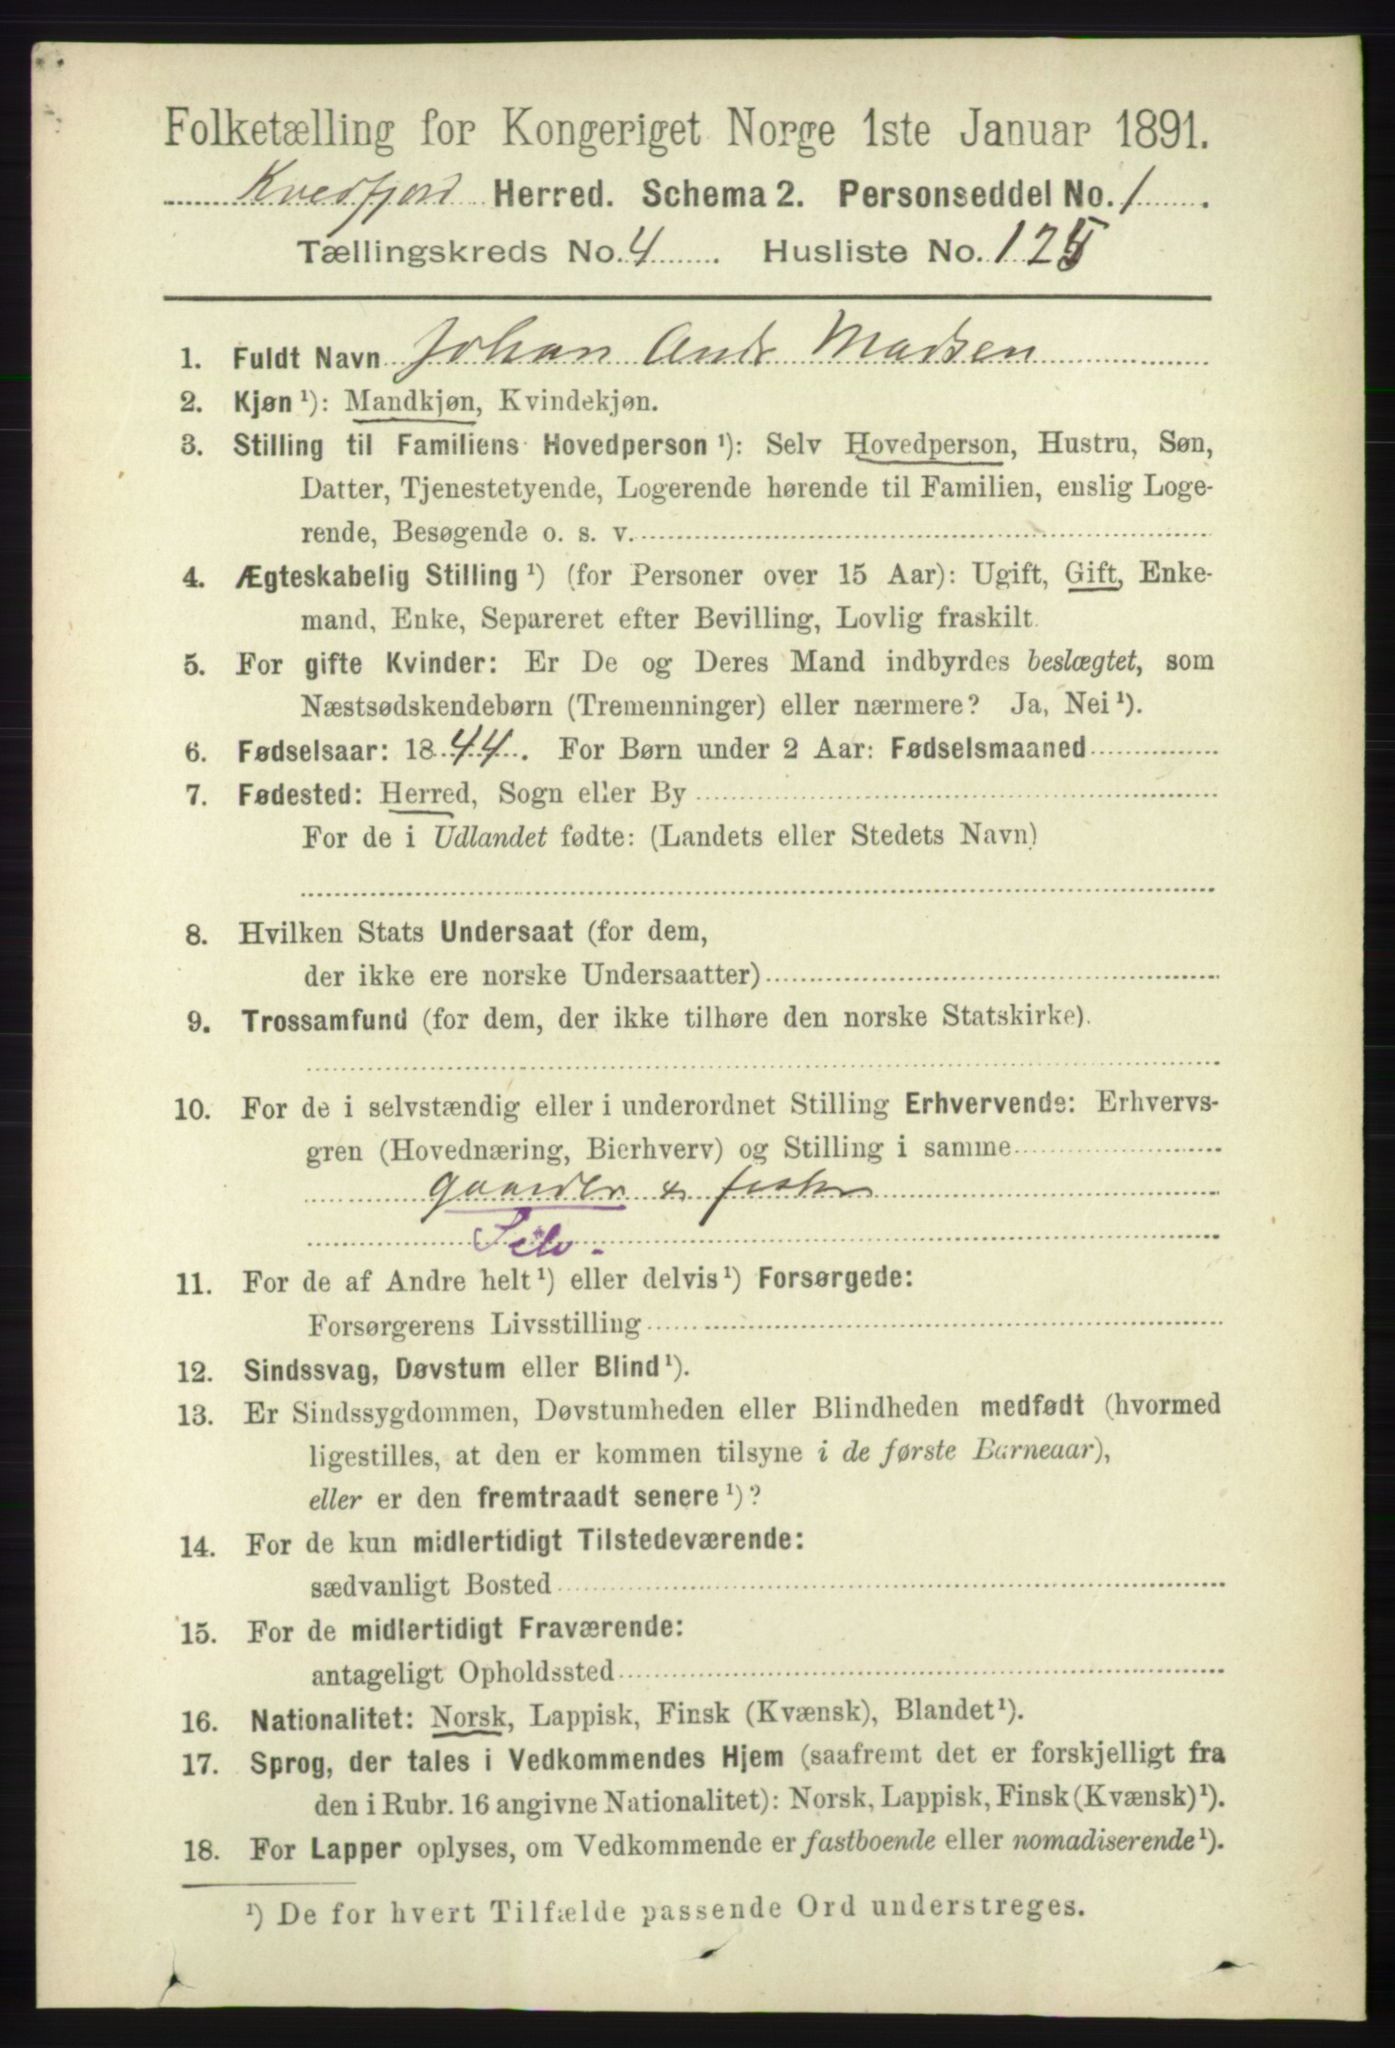 Folketælling for Kongeriget Norge 1ste Januar 1891.
Kvedfjord Herred. Schema 2. Personseddel No. 1
Tællingskreds No. 4 Husliste No. 125
1. Fuldt Navn Johan Andr Madsen
2. Kjøn¹): Mandkjøn, Kvindekjøn.
3. Stilling til Familiens Hovedperson¹): Selv Hovedperson, Hustru, Søn,
Datter, Tjenestetyende, Logerende hørende til Familien, enslig Loge-
rende, Besøgende o. s. v.
4. Ægteskabelig Stilling¹) (for Personer over 15 Aar): Ugift, Gift, Enke-
mand, Enke, Separeret efter Bevilling, Lovlig fraskilt.
5. For gifte Kvinder: Er De og Deres Mand indbyrdes beslægtet, som
Næstsødskendebørn (Tremenninger) eller nærmere? Ja, Nei¹).
6. Fødselsaar: 1844. For Børn under 2 Aar: Fødselsmaaned
7. Fødested: Herred, Sogn eller By
For de i Udlandet fødte: (Landets eller Stedets Navn)
8. Hvilken Stats Undersaat (for dem,
der ikke ere norske Undersaatter)
9. Trossamfund (for dem, der ikke tilhøre den norske Statskirke).
10. For de i selvstændig eller i underordnet Stilling Erhvervende: Erhvervs-
gren (Hovednæring, Bierhverv) og Stilling i samme
gaardbr & fisker
Selv.
11. For de af Andre helt¹) eller delvis¹) Forsørgede:
Forsørgerens Livsstilling
12. Sindssvag, Døvstum eller Blind¹).
13. Er Sindssygdommen, Døvstumheden eller Blindheden medfødt (hvormed
ligestilles, at den er kommen tilsyne i de første Barneaar),
eller er den fremtraadt senere¹)?
14. For de kun midlertidigt Tilstedeværende:
sædvanligt Bosted
15. For de midlertidigt Fraværende:
antageligt Opholdssted
16. Nationalitet: Norsk, Lappisk, Finsk (Kvænsk), Blandet¹).
17. Sprog, der tales i Vedkommendes Hjem (saafremt det er forskjelligt fra
den i Rubr. 16 angivne Nationalitet): Norsk, Lappisk, Finsk (Kvænsk)¹).
18. For Lapper oplyses, om Vedkommende er fastboende eller nomadiserende¹).
¹) De for hvert Tilfælde passende Ord understreges.